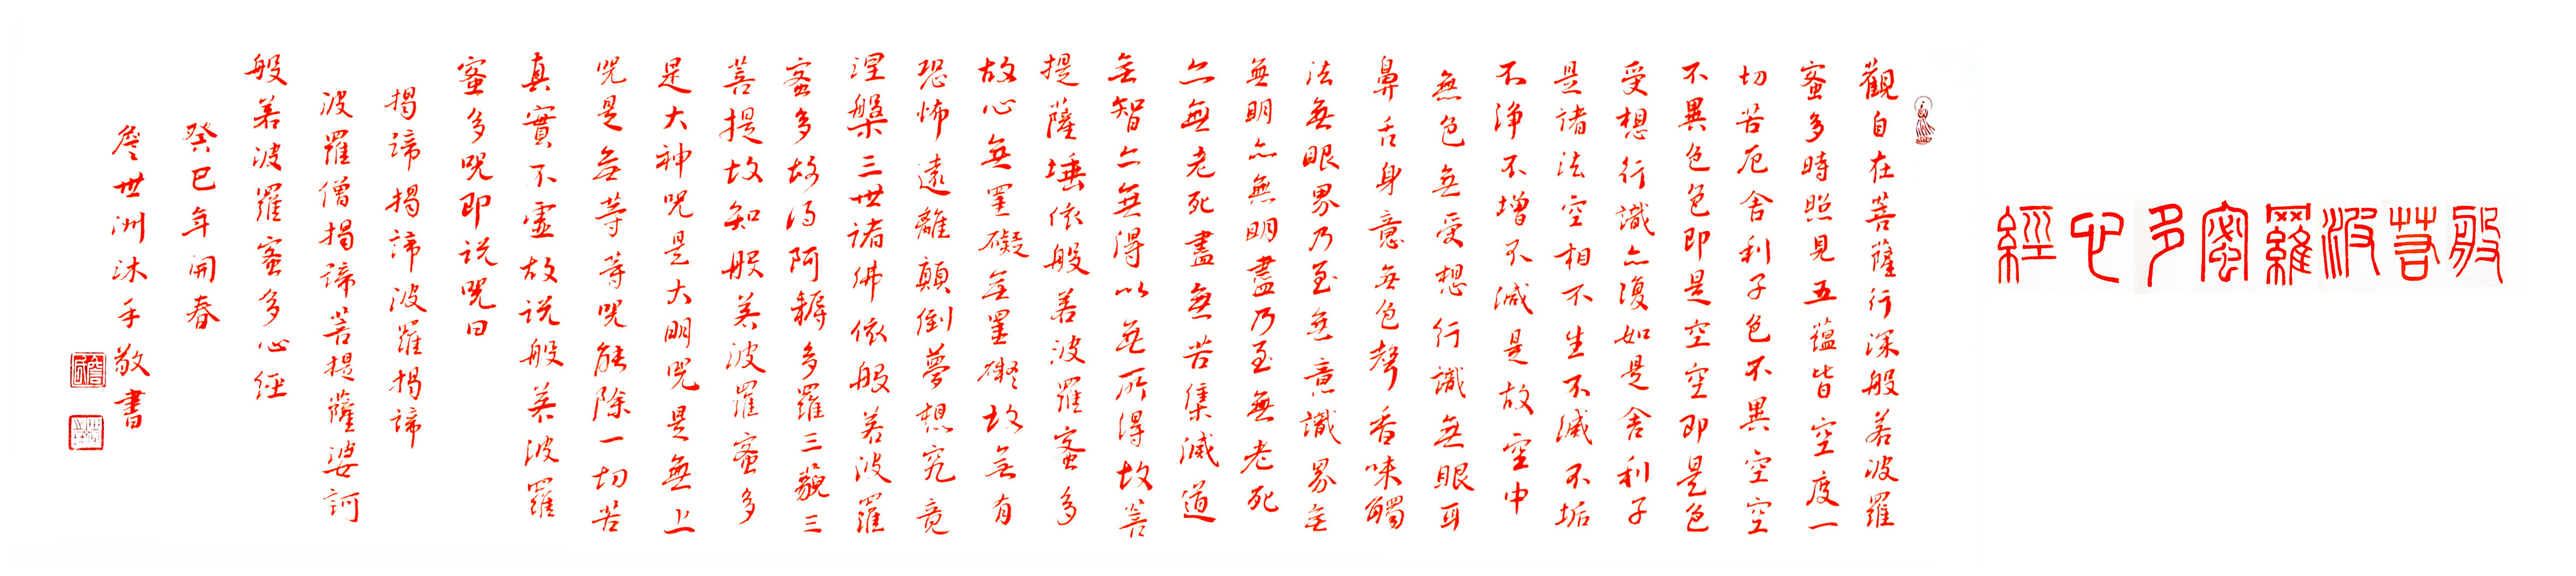 般若波羅蜜多心經
觀自在菩薩行深般若波羅
蜜多時照見五蘊皆空度一
切苦厄舍利子色不異空空
不異色色即是空空即是色
受想行識亦復如是舍利子
是諸法空相不生不滅不垢
不淨不增不減是故空中
無色無受想行識無眼耳
鼻舌身意無色聲香味觸
法無眼界乃至無意識界無
無明亦無明盡乃至無老死
亦無老死盡無苦集滅道
無智亦無得以無所得故菩
提薩埵依般若波羅蜜多
故心無罣礙無罣礙故無有
恐怖遠離顛倒夢想究竟
涅槃三世諸佛依般若波羅
蜜多故得阿耨多羅三藐三
菩提故知般若波羅蜜多
是大神咒是大明咒是無上
咒是無等等咒能除一切苦
真實不虛故說般若波羅
蜜多咒即說咒曰
揭諦揭諦波羅揭諦
波羅僧揭諦菩提薩婆訶
般若波羅蜜多心經
癸巳年開春
詹世洲沐手敬書